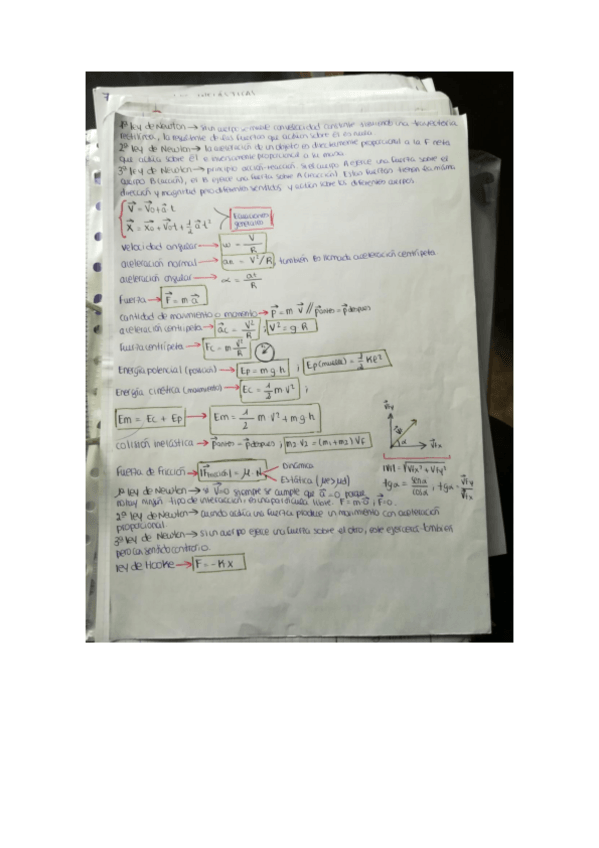 1ª ley de Newton → si un cuerpo se mueve con velocidad constante siguiendo una trayectoria
rectilínea, la resultante de las fuerzas que actúan sobre él es nula.
2ª ley de Newton → la aceleración de un objeto es directamente proporcional a la F neta
que actúa sobre él e inversamente proporcional a su masa.
3ª ley de Newton → principio acción-reacción. Si el cuerpo A ejerce una fuerza sobre el
cuerpo B (acción), el B ejerce una fuerza sobre A (reacción). Estas fuerzas tienen la misma
dirección y magnitud pero diferentes sentidos y actúan sobre los diferentes cuerpos
V = V₀ + a t
X = X₀ + V₀ t + 1/2 a t²
Ecuaciones generales
velocidad angular → ω = V/R
aceleración normal → an = V²/R, también es llamada aceleración centrípeta
aceleración angular → α = at/R
Fuerza → F = m a
cantidad de movimiento o momento → P = m V // Pantes = Pdespues
aceleración centrípeta → ac = V²/R ; V² = g R
Fuerza centrípeta → Fc = m V²/R
Energía potencial (posición) → Ep = m g h ; Ep(muelle) = 1/2 Kl²
Energía cinética (movimiento) → Ec = 1/2 m V² ;
Em = Ec + Ep → Em = 1/2 m V² + m g h
colisión inelástica → Pantes = Pdespues ; m₂ V₂ = (m₁ + m₂) Vf
V1y
α
V1x
tgα = senα/cosα ; tgα = V1y/V1x
Fuerza de fricción → |Ffricción| = μ · N
Dinámica
Estática
1ª ley de Newton → si V=0 siempre se cumple que a=0 porque
no hay ningún tipo de interacción, es una partícula libre. F = m a ; F=0.
2ª ley de Newton → cuando actúa una fuerza produce un movimiento con aceleración
proporcional.
3ª ley de Newton → si un cuerpo ejerce una fuerza sobre el otro, este ejercerá también
pero en sentido contrario.
ley de Hooke → F = -K x